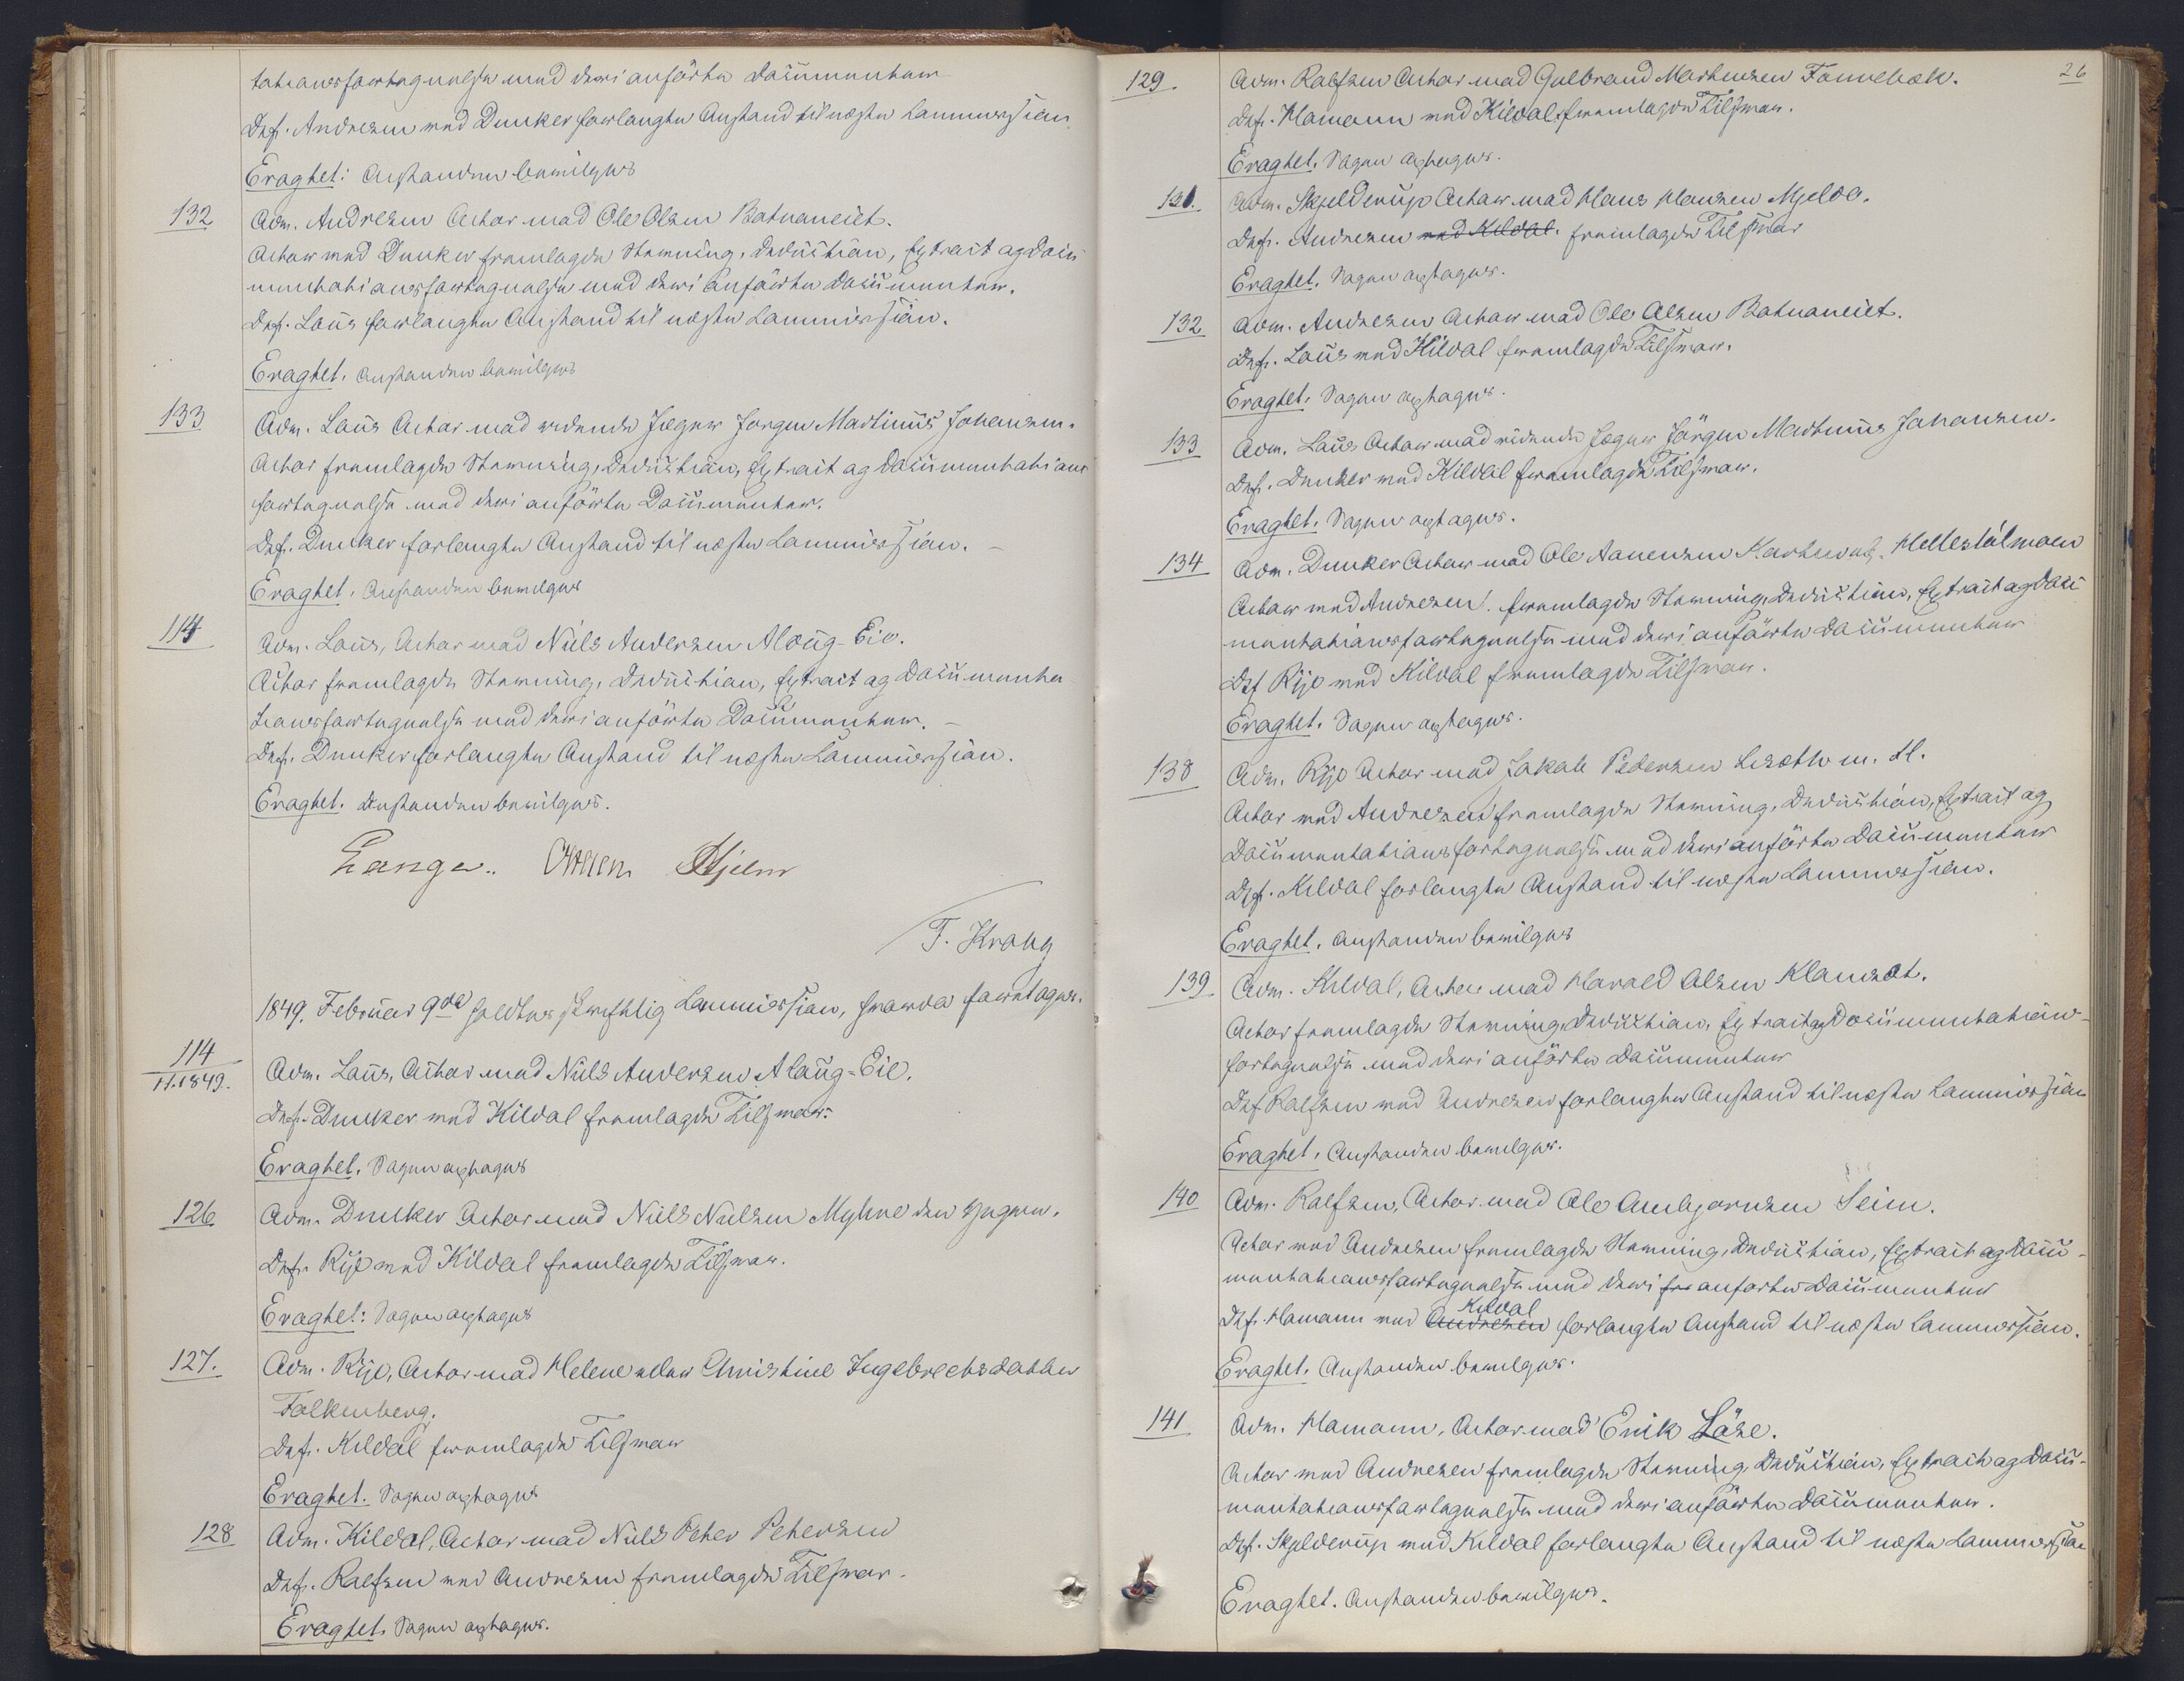 tationsfortegnelse med deri anførte Documenter
Def. Andresen med Dunker forlangte Anstand til næste Commission
Eragtet: Anstanden bevilges
132
Adv. Andresen Actor mod Ole Olsen Batnaneiet.
Actor med Dunker fremlagde Stevning, Deduction, Extract og Docu
mentationsfortegnelse med deri anførte Documenter.
Def. Lous forlangte Anstand til næste Commission.
Eragtet. Anstanden bevilges
133
Adv. Lous Actor mod ridende Jæger Jørgen Martinius Johansen.
Actor fremlagde Stevning, Deduction, Extract og Documentations
fortegnelse med deri anførte Documenter.
Def. Dunker forlangte Anstand til næste Commission. –
Eragtet. Anstanden bevilges
114
Adv. Lous, Actor mod Niels Andersen Aloug-Eie.
Actor fremlagde Stevning, Deduction, Extract og Documenta
tionsfortegnelse med deri anførte Documenter. –
Def. Dunker forlangte Anstand til næste Commission.
Eragtet. Anstanden bevilges.
Lange. Ottesen Hjelm
T. Kraug
1849. Februar 9de holdtes skriftlig Commission, hvorda foretoges.
114
11.1849.
Adv. Lous, Actor mod Niels Andersen Aloug-Eie.
Def. Dunker med Kildal fremlagde Tilsvar.
Eragtet. Sagen optages
126
Adv. Dunker Actor mod Niels Nielsen Myhre den yngre.
Def. Rije med Kildal fremlagde Tilsvar.
Eragtet: Sagen optages
127.
Adv. Rije, Actor mod Helene eller Christine Ingebrechtsdatter
Falkenberg.
Def. Kildal fremlagde Tilsvar
Eragtet. Sagen optages
128
Adv. Kildal, Actor mod Niels Peter Petersen
Def. Rolfsen med Andresen fremlagde Tilsvar.
Eragtet. Sagen optages.
26
129.
Adv. Rolfsen Actor mod Gulbrand Mortensen Fonnebæk.
Def. Homann med Kildal fremlagde Tilsvar.
Eragtet. Sagen optages.
131.
Adv. Skjelderup Actor mod Hans Hansen Mjelde.
Def. Andresen med Kildal. fremlagde Tilsvar
Eragtet. Sagen optages.
132.
Adv. Andresen Actor mod Ole Olsen Batnaneiet.
Def. Lous med Kildal fremlagde Tilsvar.
Eragtet. Sagen optages.
133
Adv. Lous Actor mod ridende Jæger Jørgen Martinus Johansen.
Def. Dunker med Kildal fremlagde Tilsvar.
Eragtet. Sagen optages.
134
Adv. Dunker Actor mod Ole Aanensen Hellestølmoen
Actor med Andresen fremlagde Stevning, Deduction, Extract og Docu
mentationsfortegnelse med deri anførte Documenter
Def Rije med Kildal fremlagde Tilsvar.
Eragtet. Sagen optages.
138
Adv. Rije Actor mod Jakob Pedersen Lesøth m. Fl.
Actor med Andresen fremlagde Stevning, Deduction, Extract og
Documentationsfortegnelse med deri anførte Documenter
Def. Kildal forlangte Anstand til næste Commission.
Eragtet. Anstanden bevilges
139
Adv. Kildal, Actor mod Harald Olsen Klauset.
Actor fremlagde Stevning, Deduction, Extract og Documentations-
fortegnelse med deri anførte Documenter
Def Rolfsen med Andresen forlangte Anstand til næste Commission
Eragtet. Anstanden bevilges.
140
Adv. Rolfsen, Actor mod Ole Anbjørnsen Seim.
Actor med Andresen fremlagde Stevning, Deduction, Extract og Docu-
mentationsfortegnelse med deri fre anførte Documenter
Def. Homann med Andresen Kildal forlangte Anstand til næste Commission.
Eragtet. Anstanden bevilges.
141
Adv. Homann, Actor mod Erik Løse.
Actor med Andresen fremlagde Stevning, Deduction, Extract og Docu-
mentationsfortegnelse med deri anførte Documenter.
Def. Skjelderup med Kildal forlangte Anstand til næste Commission
Eragtet. Anstanden bevilges.